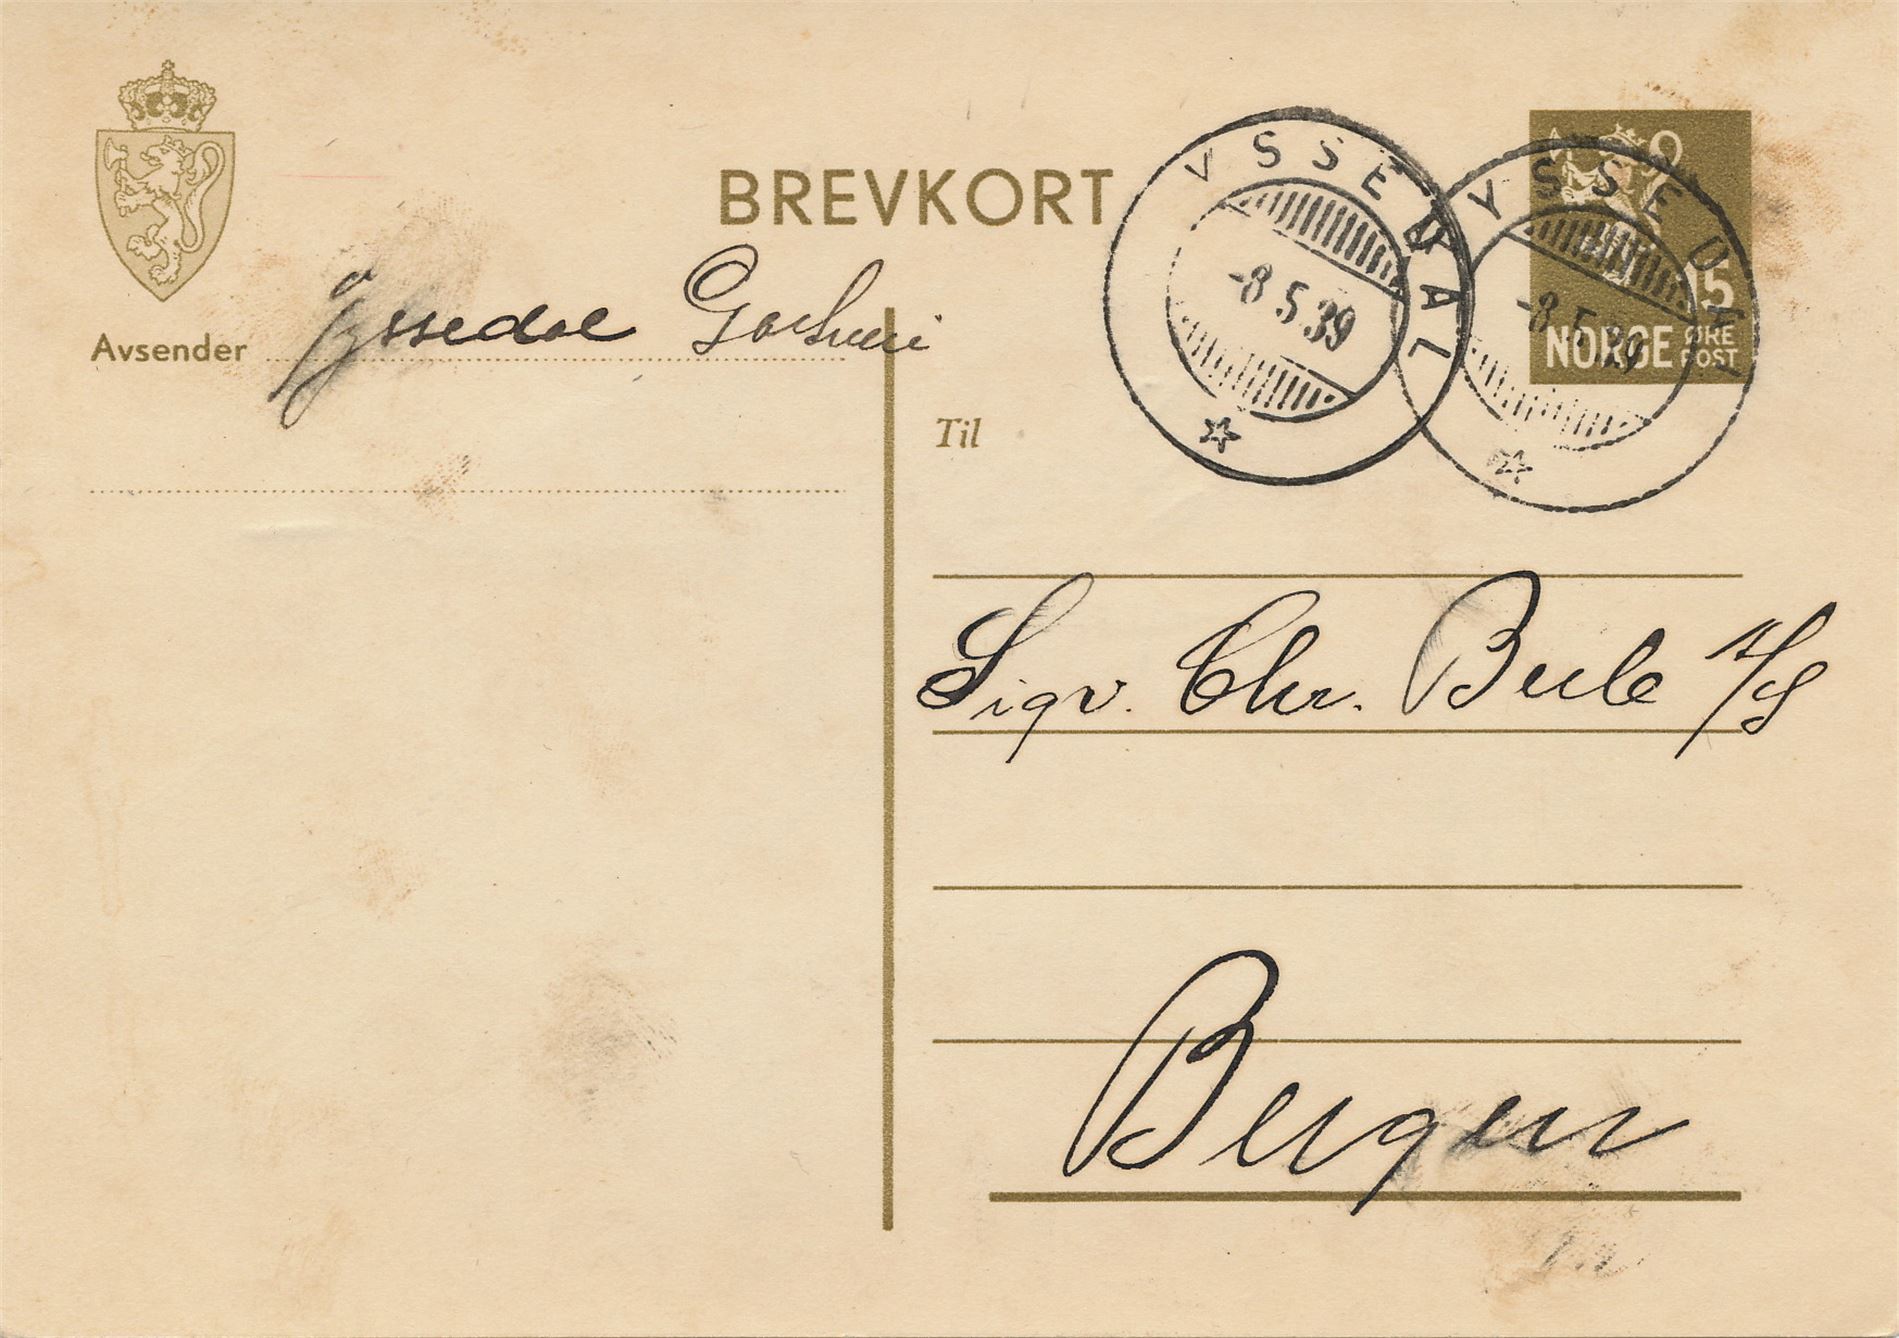 BREVKORT
YSSEDAL
-8 5.39
YSSEDAL
-8.5.39
15
NORGE ØRE
POST
Avsender Yssedal
Til
Sigv. Chr. A/S
Bergen